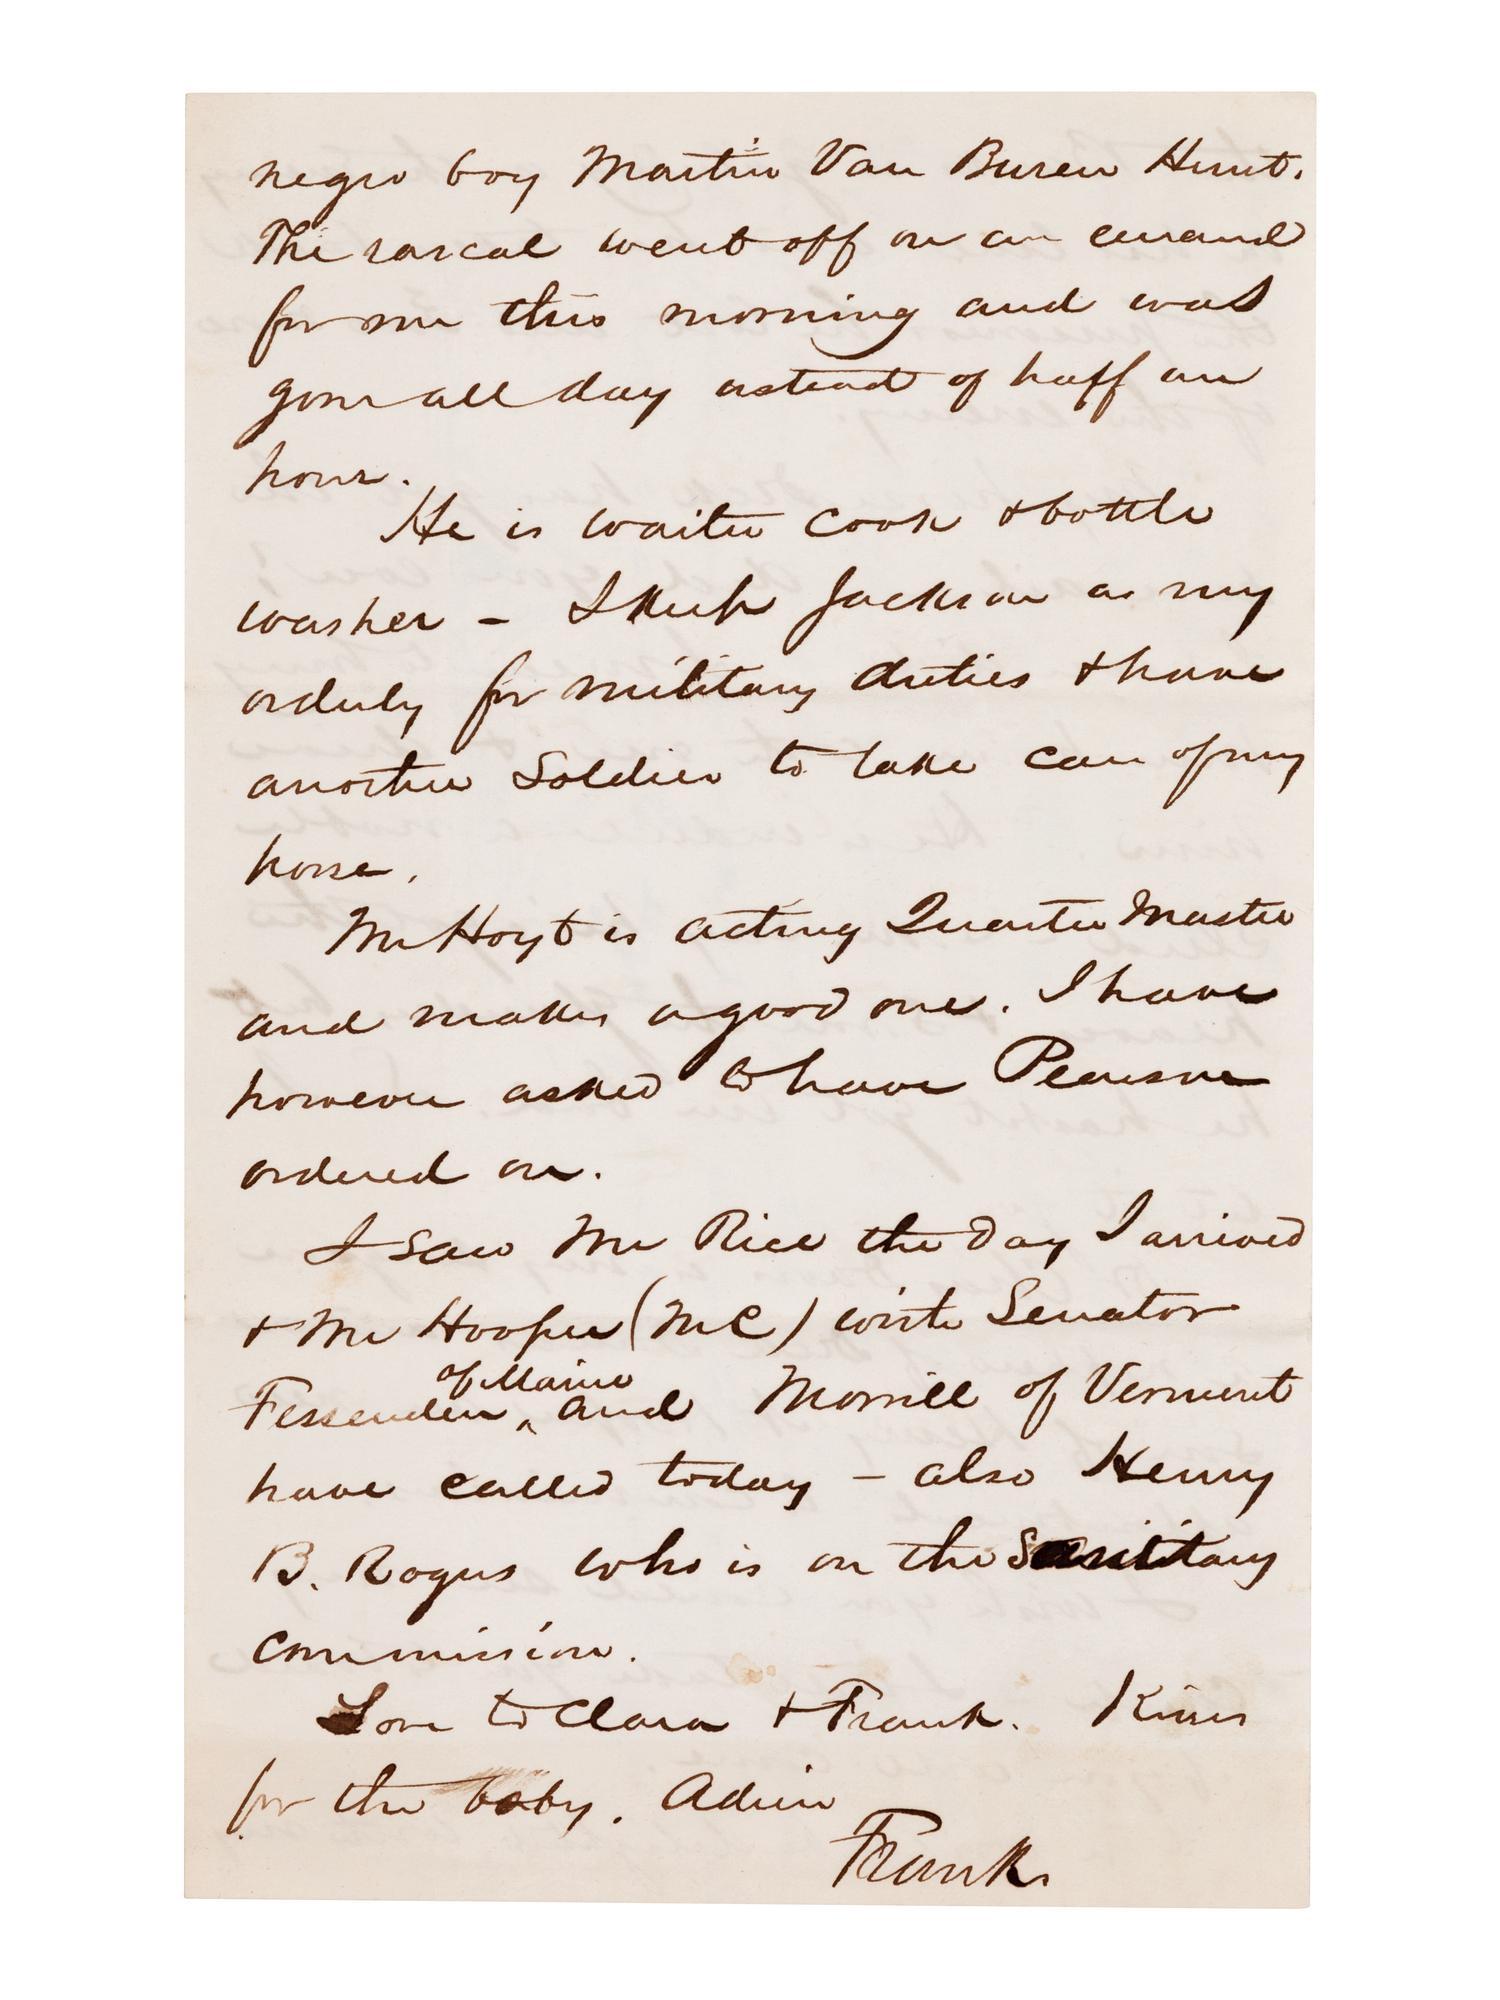 negro boy Martin Van Buren Hunt.
The rascal went off on an errand
for me this morning and was
gone all day instead of half an
hour.
He is waiter cook & bottle
washer – I keep Jackson as my
orderly for military duties & have
another Soldier to take care of my
horse.
Mr Hoyt is acting Quarter Master
and makes a good one. I have
however asked to have Pearson
ordered on.
I saw Mr Rice the day I arrived
& Mr Hooper (MC) with Senator
of Maine
Fessenden ‸ and Morrill of Vermont
have called today – also Henry
B. Rogers who is on the Sanitary
Commission.
Love to Clara & Frank. Kisses
for the baby. Adieu
Frank.